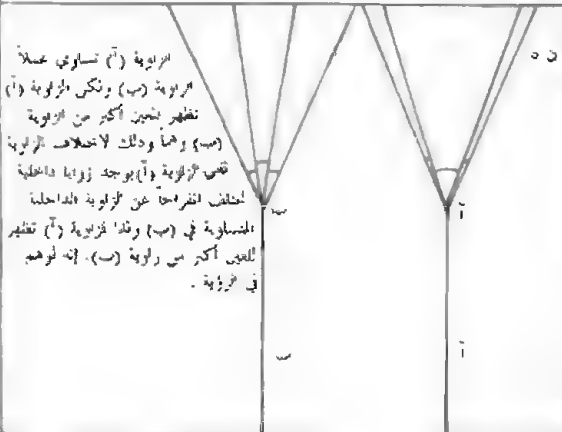 الزاوية (آ) تساوي عملاً
الزاوية (ب) ولكن الزاوية (آ)
تظهر للعين أكبر من الزاوية
(ب) وهماً وذلك لاختلاف الزاوية
ففي الزاوية (آ) يوجد زوايا داخلية
تختلف انفراجاً عن الزاوية الداخلية
المتساوية في (ب) ولذا فزاوية (آ) تظهر
للعين أكبر من زاوية (ب). إنه الوهم
في الرؤية .
ن ٥
ب
آ
ب
آ